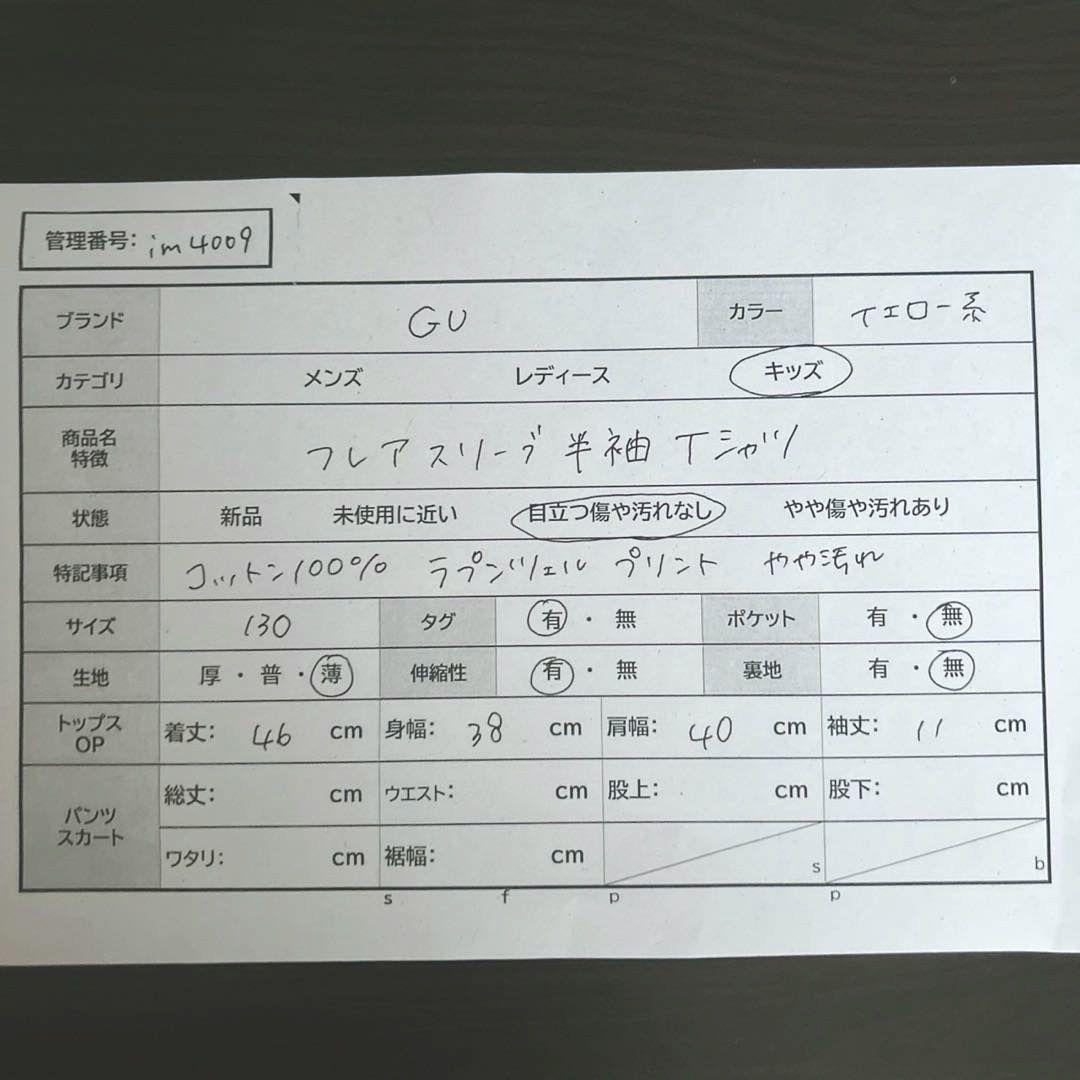 管理番号: im4009
ブランド GU カラー イエロー系
カテゴリ メンズ レディース キッズ
商品名
特徴 フレアスリーブ半袖Tシャツ
状態 新品 未使用に近い 目立つ傷や汚れなし やや傷や汚れあり
特記事項 コットン100% ラプンツェル プリント やや汚れ
サイズ 130 タグ 有・無 ポケット 有・無
生地 厚・普・薄 伸縮性 有・無 裏地 有・無
トップス
OP 着丈: 46 cm 身幅: 38 cm 肩幅: 40 cm 袖丈: 11 cm
パンツ
スカート 総丈: cm ウエスト: cm 股上: cm 股下: cm
ワタリ: cm 裾幅: cm s b
s f p p